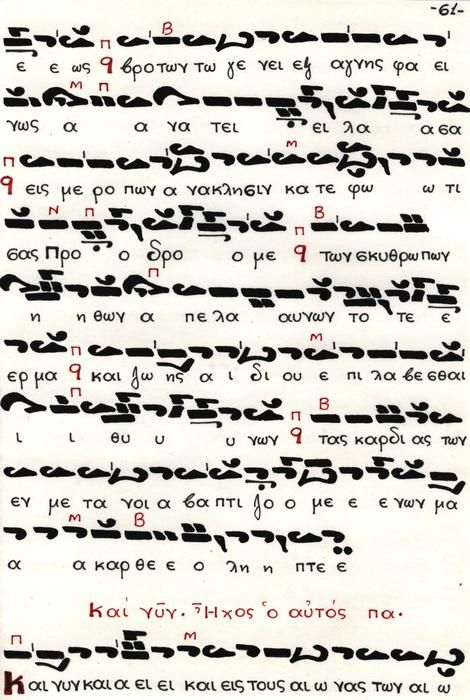 -61-
Π Β
ε ε ως q βροτων τω γε νει εξ αγνης φα ει
Μ Π
νως α α να τει ει λα α σα
Π Μ
q εις με ρο πων α νακλησιν κα τε φω ω τι
Ν Π Π Β
σας Προ ο δρο ο με q των σκυθρω πων
Π
η η θων α πε λα αυνων το τε ε
Π Μ
ερ μα q και ζω ης α ι δι ου ε πι λα βε σθαι
Π Π Β
ι ι θυ υ υ νων q τας καρδι ας των
εν με τα νοι α βα πτι ζο ο με ε ε νων μα
Μ Β
α α καρ θε ε ο λη η πτε ε
Καί νῦν. Ἦχος ὁ αὐτός πα.
Π Μ
Και νυν και α ει ει και εις τους αι ω νας των αι ω